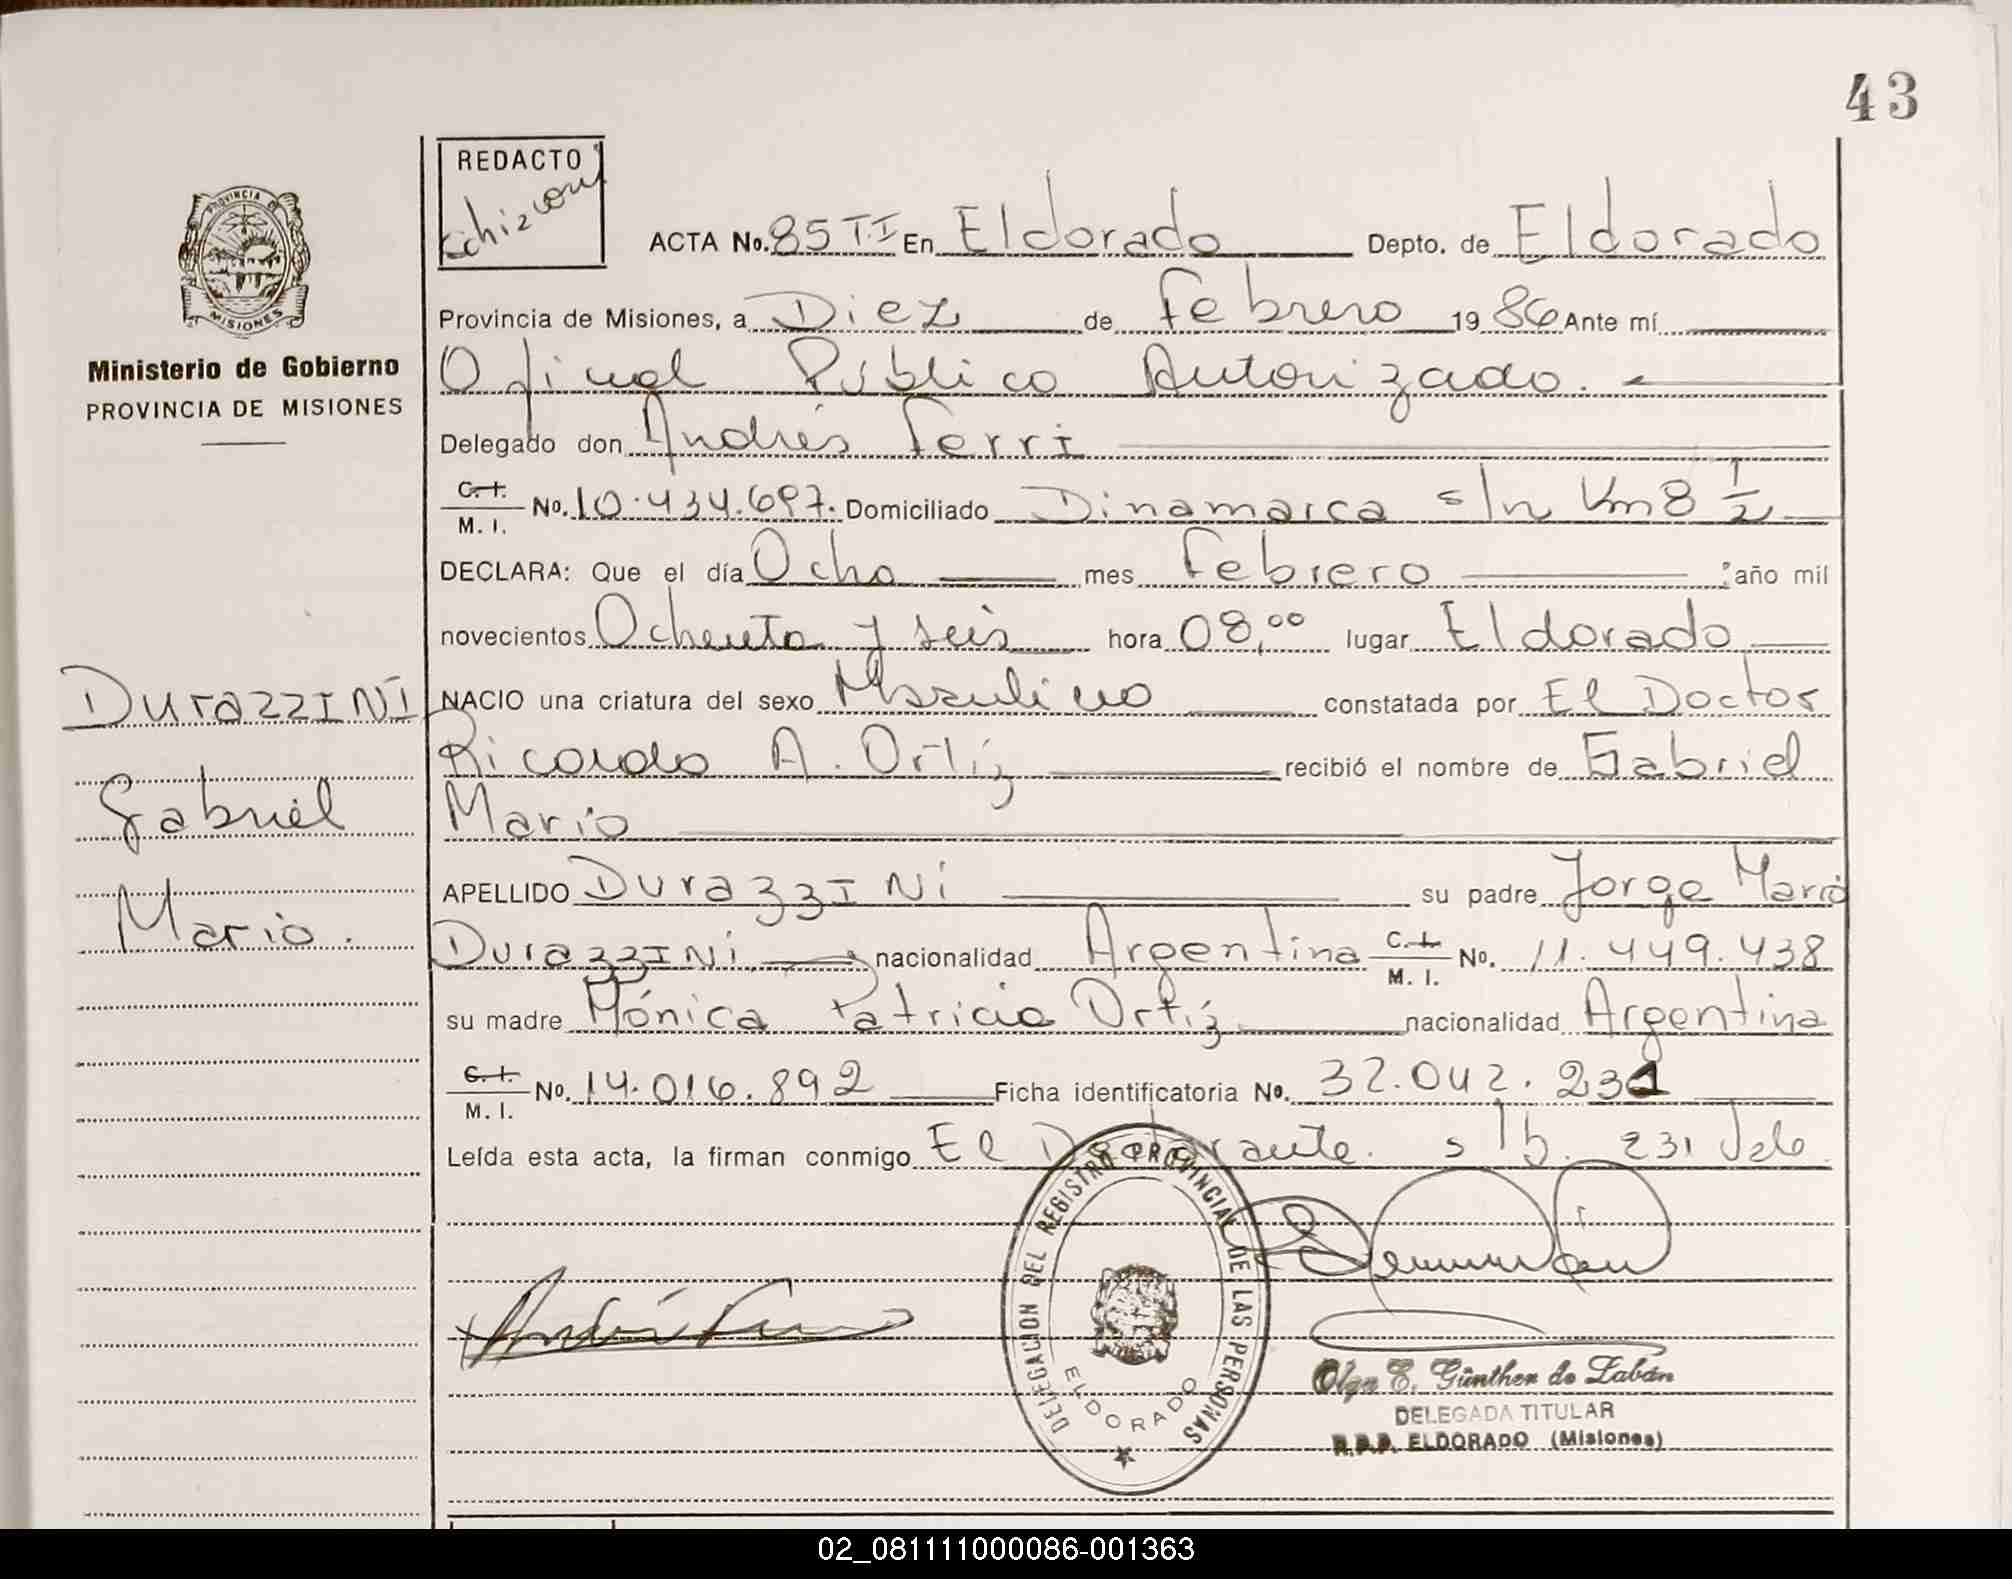 43
REDACTO
PROVINCIA DE
MISIONES
Ministerio de Gobierno
PROVINCIA DE MISIONES
ACTA No. 85 TI En Eldorado Depto. de Eldorado
Provincia de Misiones, a Diez de Febrero 1986 Ante mí
Oficial Público Autorizado.
Delegado don Andrés Ferri
C. I. M. I. No. 10.434.697. Domiciliado Dinamarca s/n Km 8 1/2
DECLARA: Que el día Ocho mes Febrero año mil
novecientos Ochenta y seis hora 08,00 lugar Eldorado
NACIO una criatura del sexo Masculino constatada por El Doctor
Ricardo A. Ortíz recibió el nombre de Gabriel
Mario
APELLIDO DurazzINi su padre Jorge Mario
DurazzINi nacionalidad Argentina C. I. M. I. No. 11.449.438
su madre Mónica Patricia Ortíz nacionalidad Argentina
C. I. M. I. No. 14.016.892 Ficha identificatoria No. 32.042.231
Leída esta acta, la firman conmigo El Declarante. s/b. 231 Vale
DurazzINi
Gabriel
Mario.
DELEGACION DEL REGISTRO PROVINCIAL DE LAS PERSONAS
ELDORADO
Olga E. Günther de Labán
DELEGADA TITULAR
R.P.P. ELDORADO (Misiones)
02_081111000086-001363